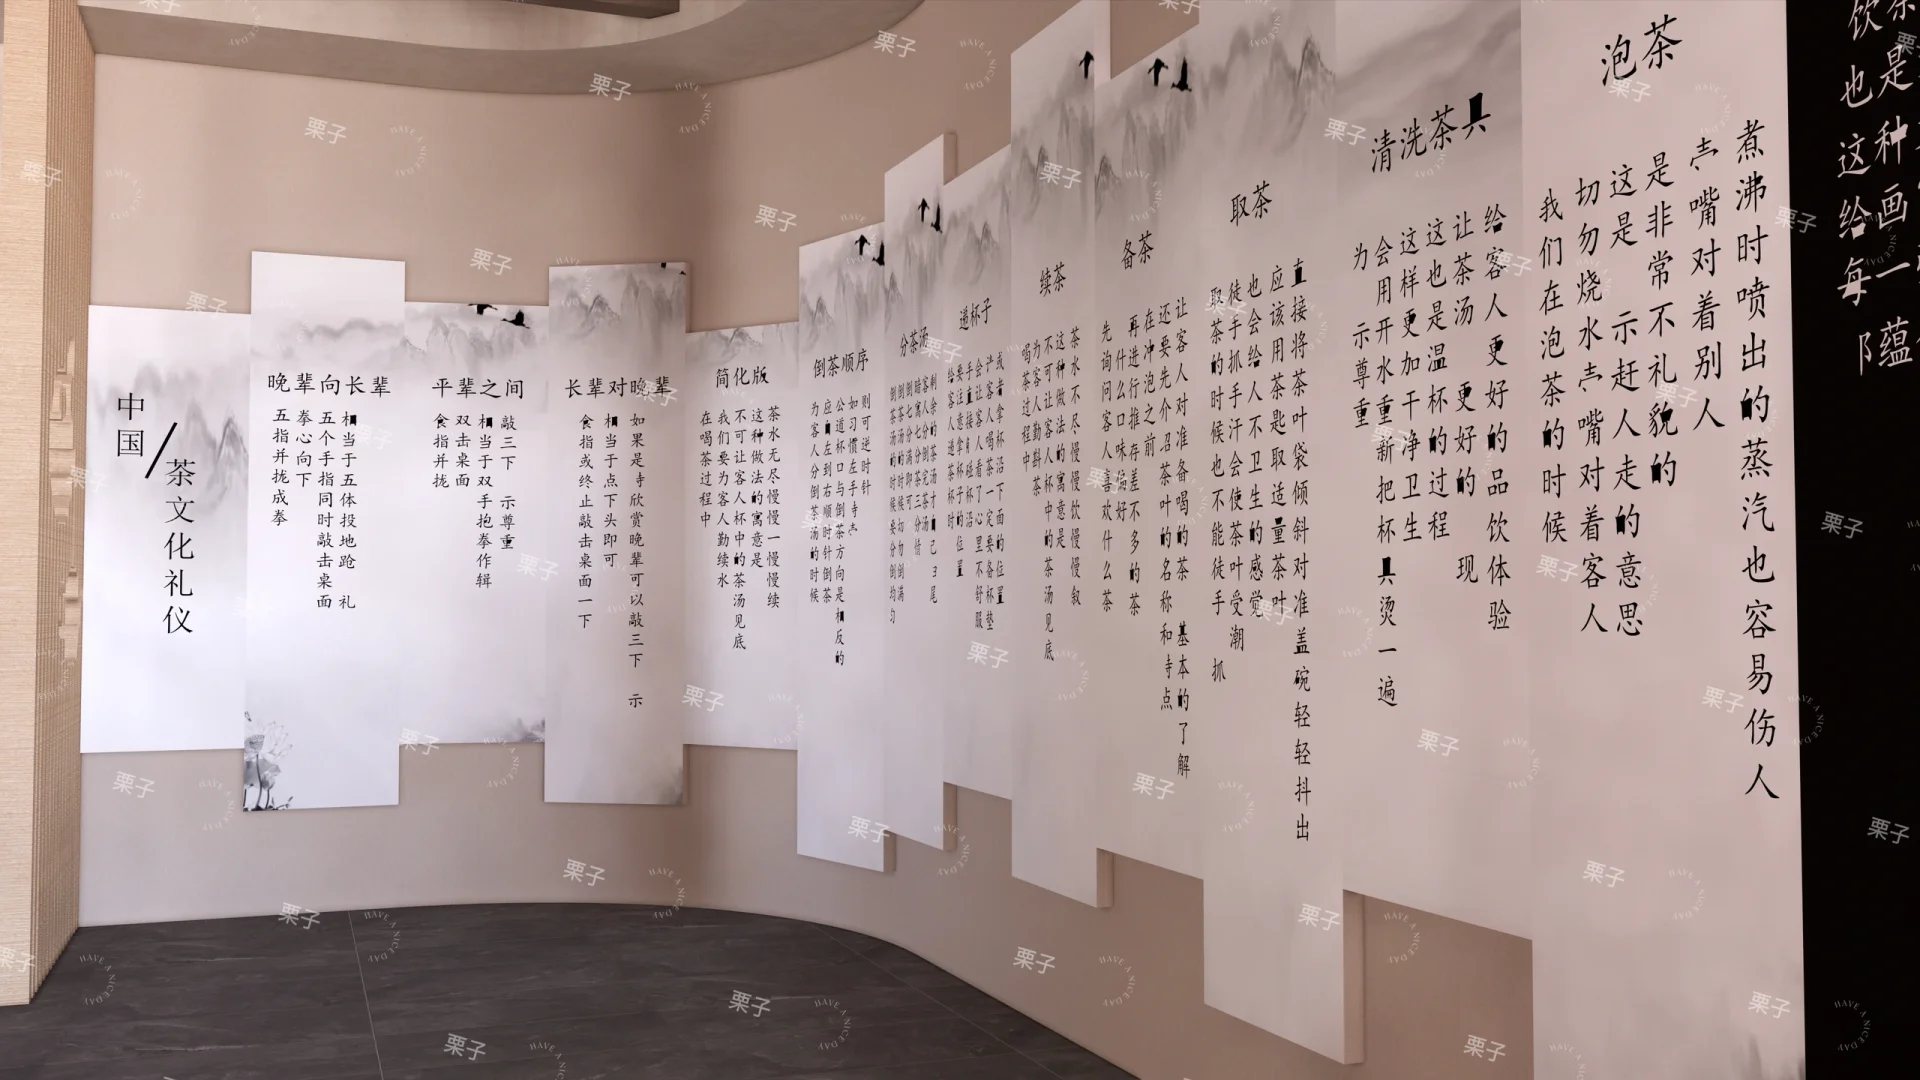 中国
茶文化礼仪
晚辈向长辈
五指并拢成拳
拳心向下
五个手指同时敲击桌面
相当于五体投地跄 礼
平辈之间
食指并拢
双击桌面
相当于双手抱拳作辑
敲三下 示尊重
长辈对晚辈
食指或终止敲击桌面一下
相当于点下头即可
如果是寺欣赏晚辈可以敲三下 示
简化版
在喝茶过程中
我们要为客人勤续水
不可让客人杯中的茶汤见底
这种做法的寓意是
茶水无尽慢慢一慢慢续
倒茶顺序
为客人分倒茶汤的时候
应由左到右顺时针倒茶
公道杯口与倒茶方向是相反的
如习惯左手寺
则可逆时针
分茶汤
倒茶汤的时候要分倒均匀
倒茶汤的时候切勿倒满
倒七分满即可
暗寓七分茶三分情
客人分倒完茶汤
剩余的茶汤才自己
递杯子
给客人递茶杯时
要注意拿杯子的位置
手直接碰杯沿
会让客人看心里不舒服
许客人喝茶一定要备杯垫
或者拿杯沿下面的位置
续茶
喝茶过程中
为客人勤斟茶
不可让客人杯中的茶汤见底
这种做法的寓意是
茶水不尽慢慢饮慢慢叙
备茶
先询问客人喜欢什么茶
什么口味偏好
再进行推存差不多的茶
在冲泡之前
还要先介召茶叶的名称和寺点
让客人对准备喝的茶 基本的了解
取茶
取茶的时候也不能徒手 抓
徒手抓手汗会使茶叶受潮
也会给人不卫生的感觉
应该用茶匙取适量茶叶
直接将茶叶袋倾斜对准盖碗轻轻抖出
清洗茶具
为 示尊重
会用开水重新把杯具烫一遍
这样更加干净卫生
这也是温杯的过程
让茶汤 更好的 现
给客人更好的品饮体验
泡茶
我们在泡茶的时候
切勿烧水壶嘴对着客人
这是 示赶人走的意思
是非常不礼貌的
壶嘴对着别人
煮沸时喷出的蒸汽也容易伤人